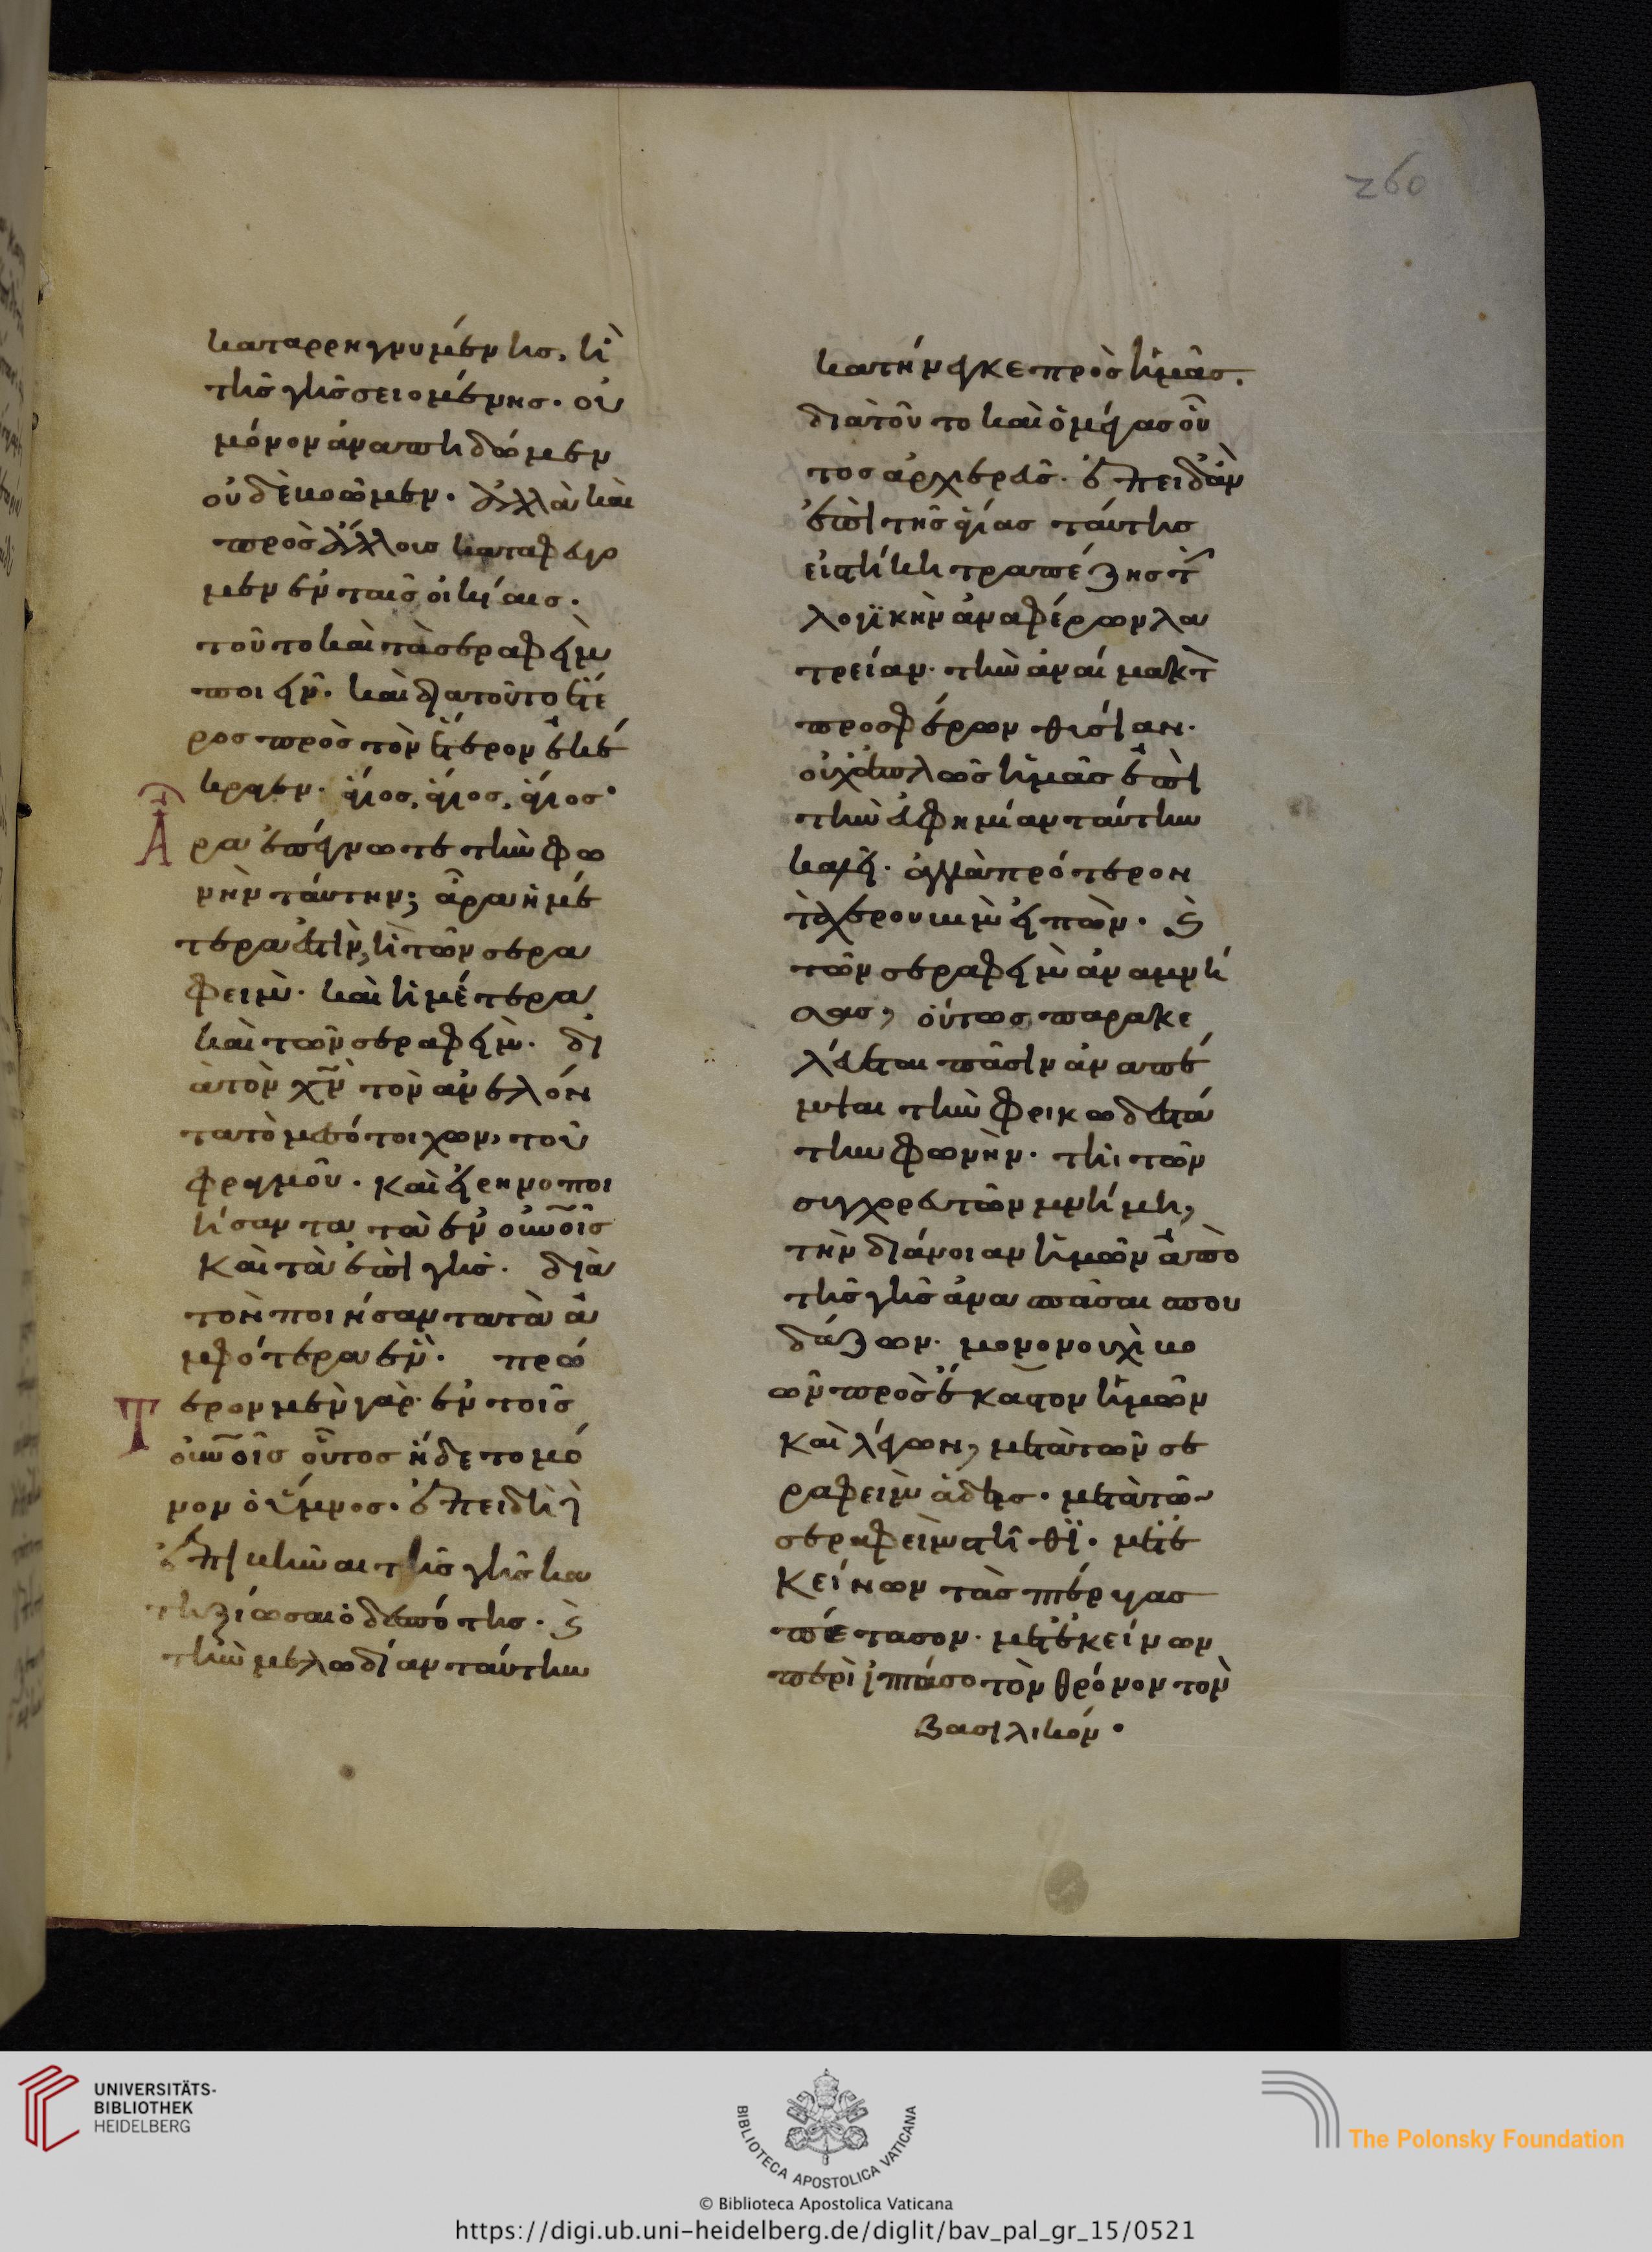 260
καταρρηγνυμένης, ἢ
τῆς γῆς σειομένης. οὐ
μόνον ἀναπηδῶμεν
οὐδὲ βοῶμεν. ἀλλὰ καὶ
πρὸς ἀλλήλους καταφεύγο
μεν ἐν ταῖς οἰκίαις.
τοῦτο καὶ τὰ σεραφεὶμ
ποιεῖν. καὶ διατοῦτο ἕτε
ρος πρὸς τὸν ἕτερον ἐκέ
κραγεν. ἅγιος, ἅγιος, ἅγιος.
Ἆρα ἐπέγνωτε τὴν φω
νὴν ταύτην; ἆρα ἡμέ
τερα ἐστὶν, ἢ τῶν σερα
φείμ. καὶ ἡμέτερα
καὶ τῶν σεραφεὶμ. δι
ὰ τὸν χ̅ν̅ τὸν ἀνελόν
τα τὸ μεσότοιχον, τοῦ
φραγμοῦ. καὶ εἰρηνοποι
ήσαντα τὰ ἐν οὐνοῖς
καὶ τὰ ἐπὶ γῆς. διὰ
τὸν ποιήσαντα τὰ ἀ
μφότερα ἕν. πρό
Τερον μὲν γὰρ ἐν τοῖς
οὐνοῖς οὗτος ᾔδετο μό
νον ὁ ὕμνος. ἐπειδὴ
ἐπιβῆναι τῆς γῆς κα
τηξίωσεν ὁ δεσπότης. καὶ
τὴν μελωδίαν ταύτην
κατήνεγκε πρὸς ἡμᾶς.
διὰ τοῦτο καὶ ὁ μέγας οὗ
τος ἀρχιερεύς. ἐπειδὰν
ἐπὶ τῆς ἁγίας ταύτης
εἱστήκη τραπέζης τὴν
λογϊκὴν ἀναφέρων λα
τρείαν. τὴν ἀναίμακτον
προσφέρων θυσίαν.
οὐχ ἁπλῶς ἡμᾶς ἐπὶ
τὴν εὐφημίαν ταύτην
καλεῖ. ἀλλὰ πρότερον
τὰ χερουβὶμ εἰπὼν. καὶ
τῶν σεραφεὶμ ἀναμνή
σας, οὕτως παρακε
λεύεται πᾶσιν ἀναπέ
μψαι τὴν φρικωδεστά
την φωνὴν. τῆι τῶν
συγχορευτῶν μνήμη,
τὴν διάνοιαν ἡμῶν ἀπὸ
τῆς γῆς ἀνασπάσαι σπου
δάζων. μονονουχὶ βο
ῶν πρὸς ἕκαστον ἡμῶν
καὶ λέγων, μετὰ τῶν σε
ραφεὶμ ἄδεις. μετὰ τῶν
σεραφεὶμ στῆθϊ. μετ' ἐ
κείνων τὰς πτέρυγας
πέτασον. μετ' ἐκείνων
περιίπτασο τὸν θρόνον τὸν
βασιλικόν.
UNIVERSITÄTS-
BIBLIOTHEK
HEIDELBERG
BIBLIOTECA APOSTOLICA VATICANA
The Polonsky Foundation
© Biblioteca Apostolica Vaticana
https://digi.ub.uni-heidelberg.de/diglit/bav_pal_gr_15/0521